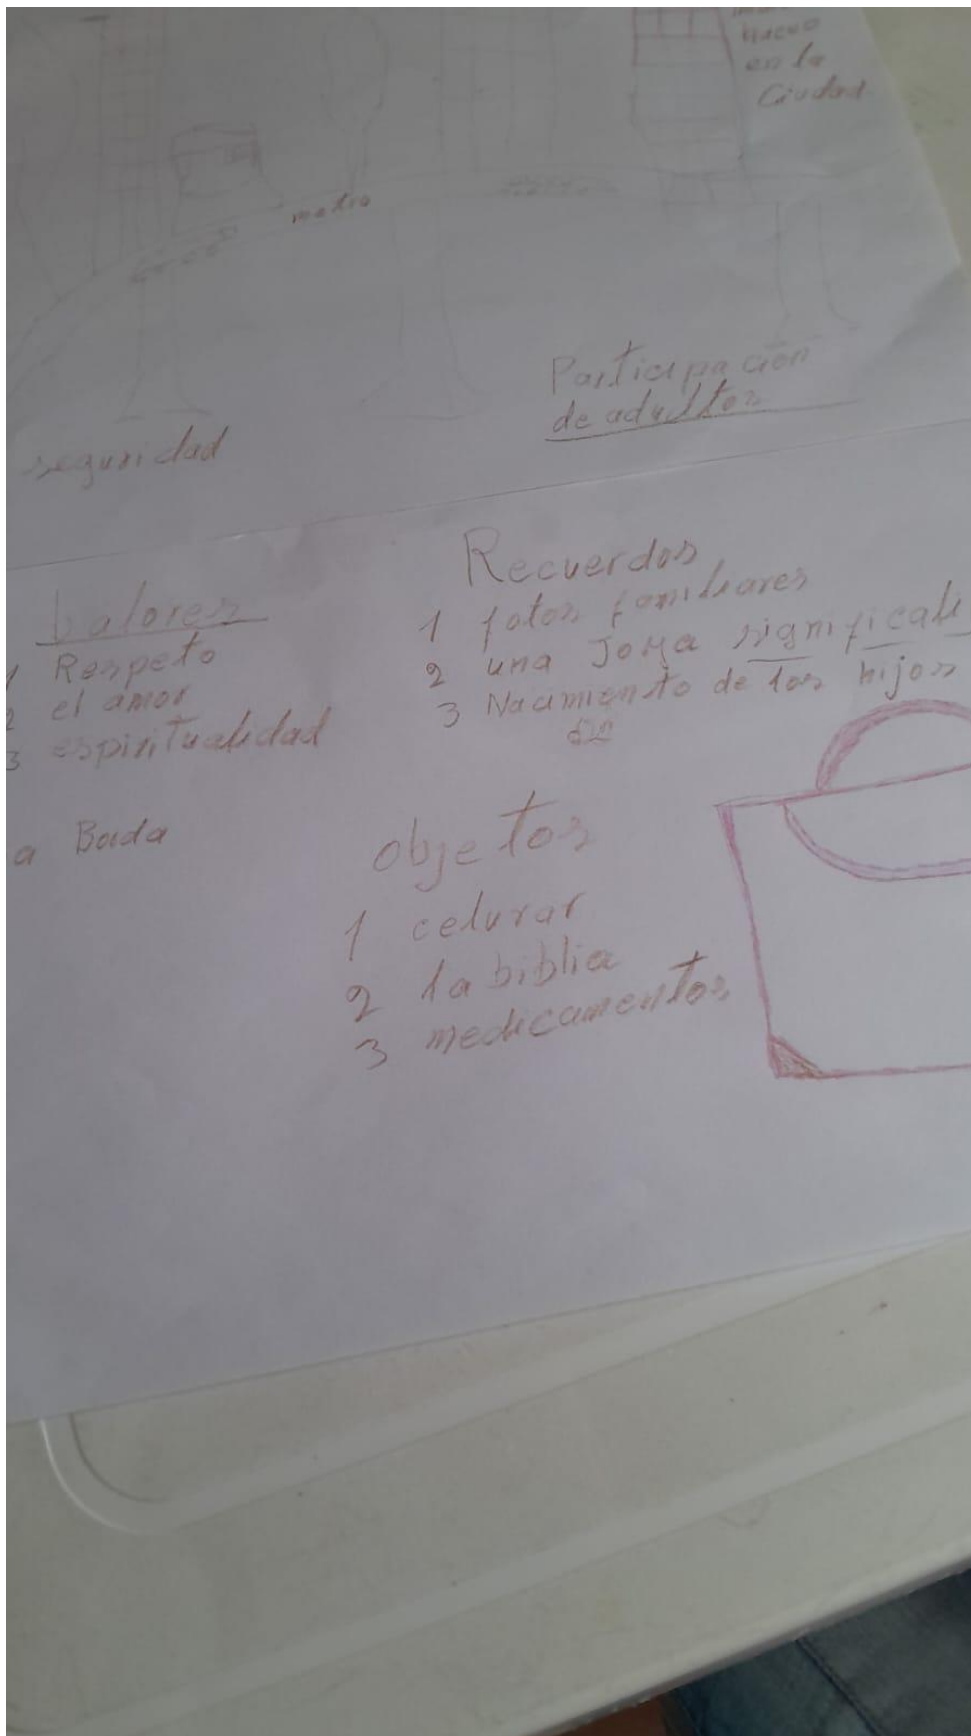 en la
Ciudad
metro
Participación
de adultos
seguridad
Valores
1 Respeto
2 el amor
3 espiritualidad
a Boda
Recuerdos
1 fotos familiares
2 una Joya significati
3 Nacimiento de los hijos
objetos
1 celurar
2 la biblia
3 medicamentos